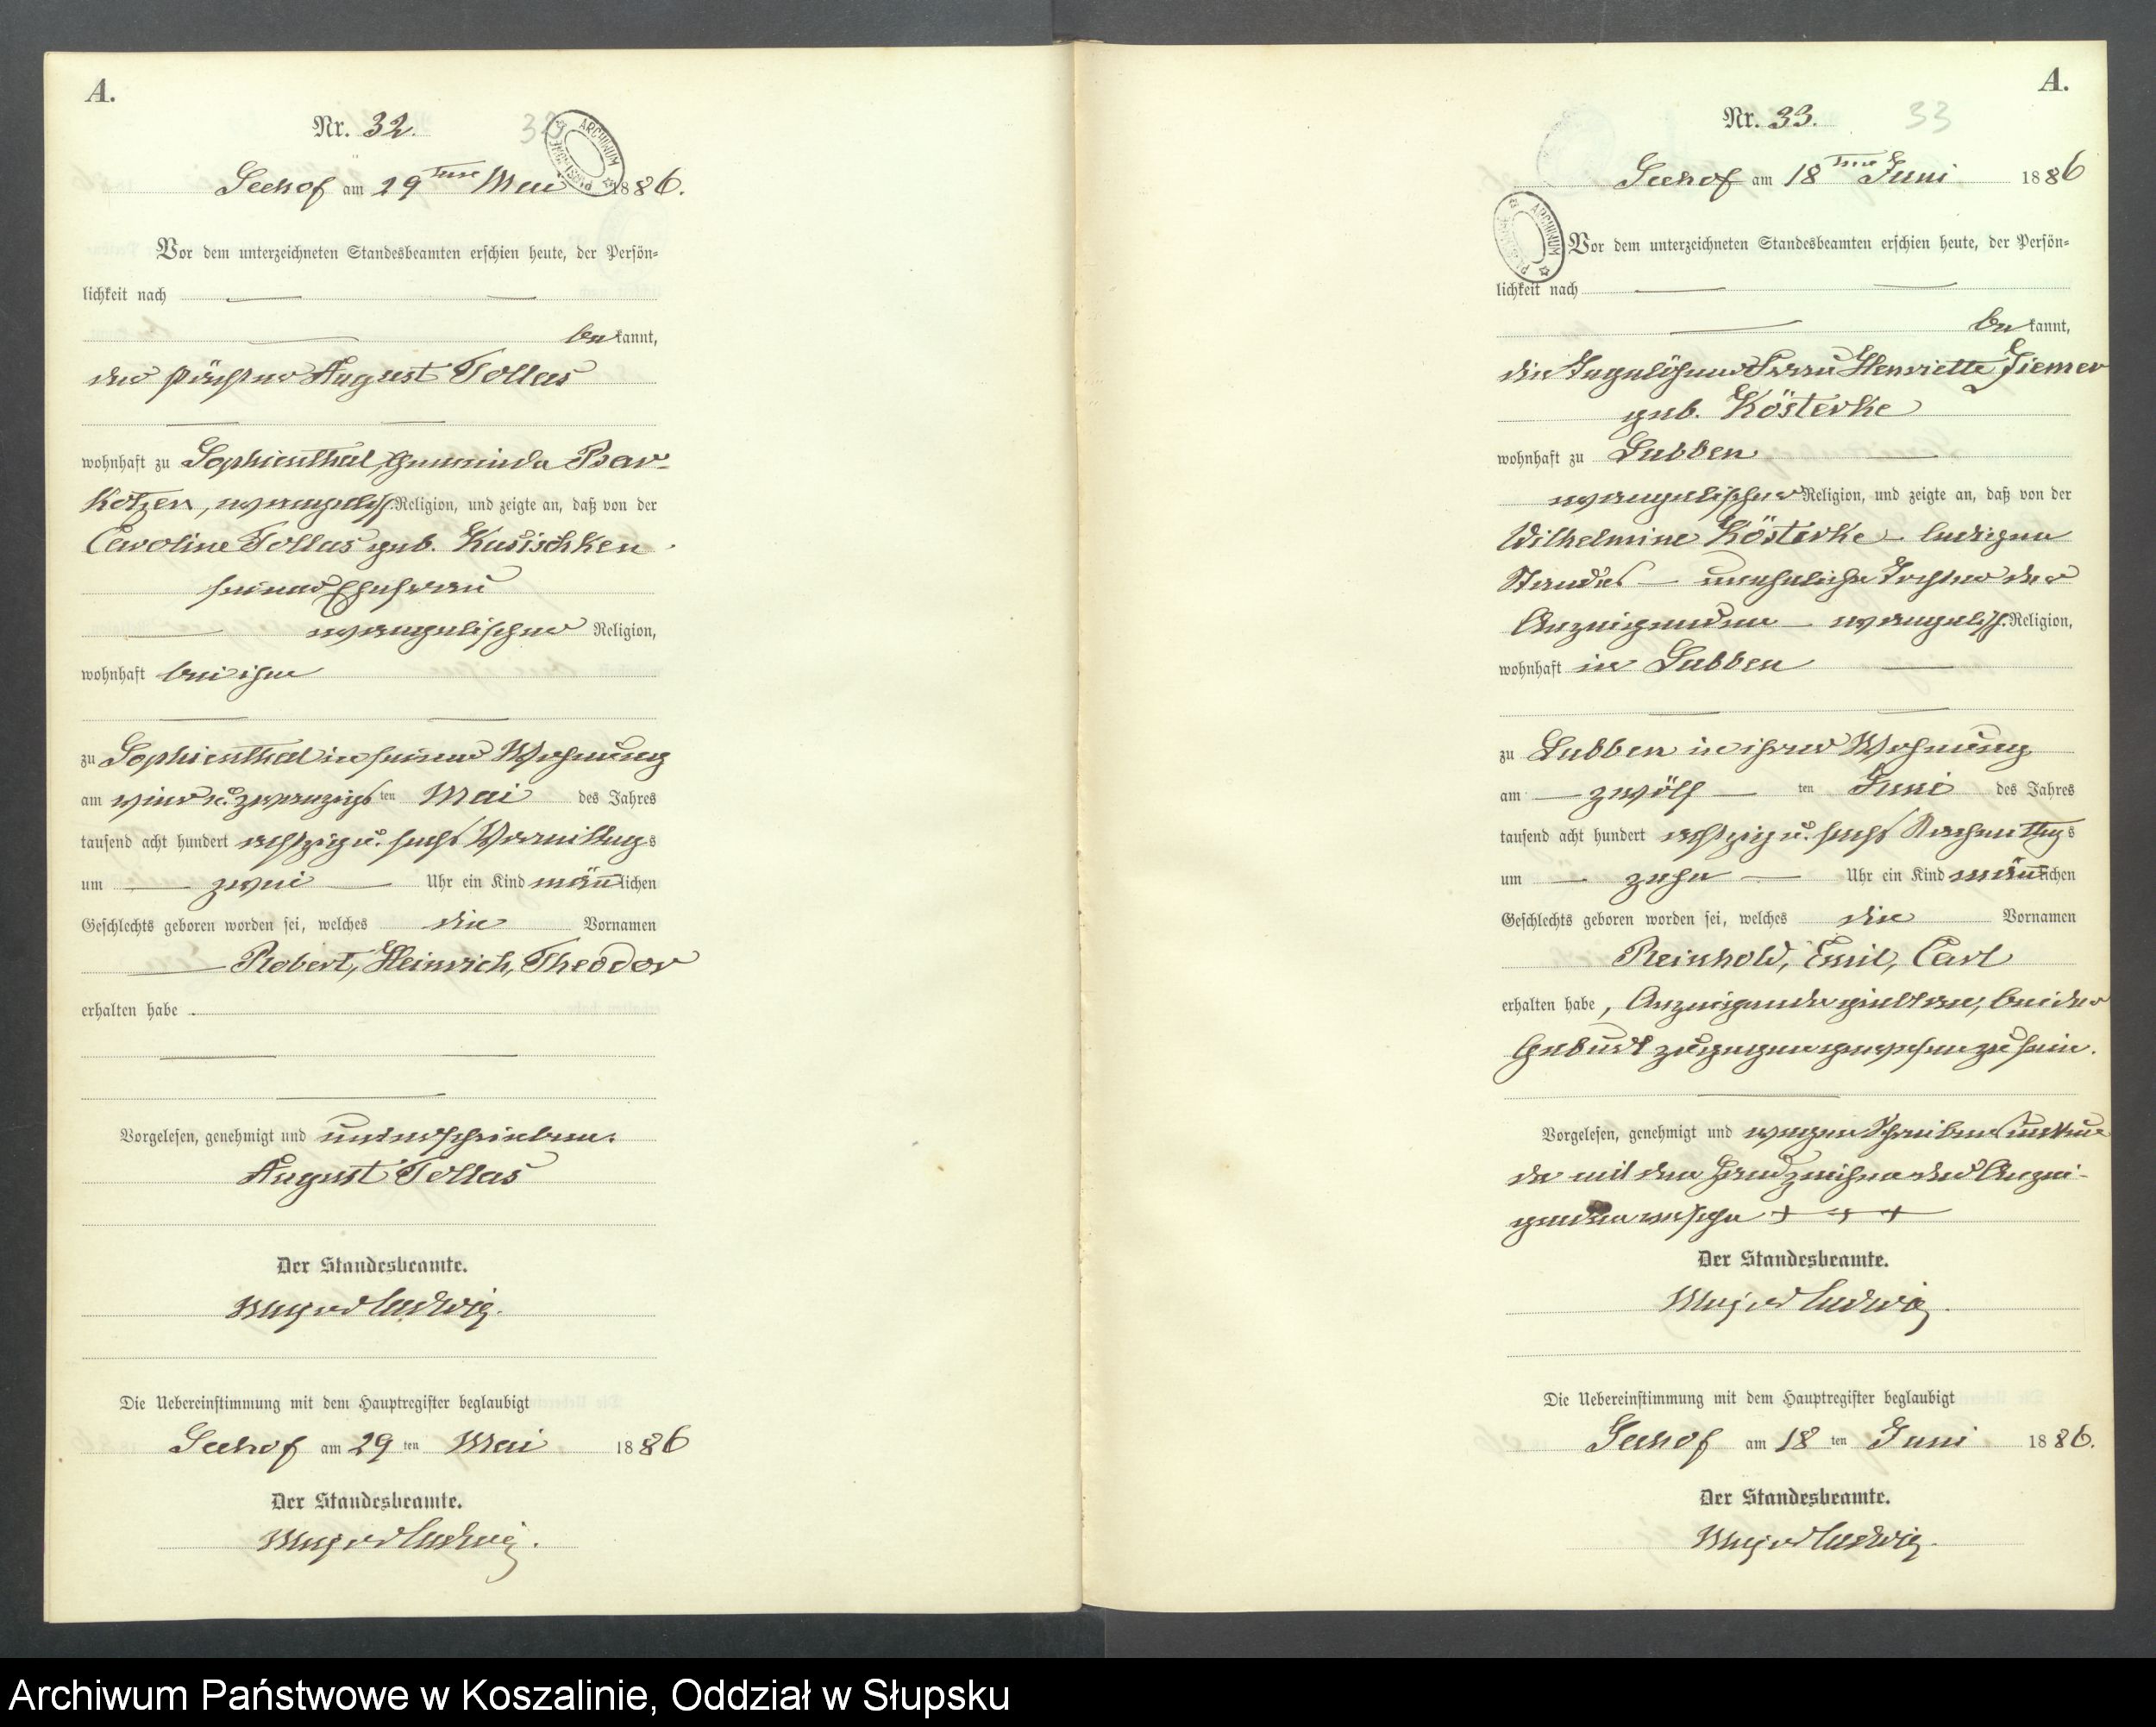 A.
Nr. 32.
32
ARCHIWUM
Seehof am 29ten Mai 1886.
Vor dem unterzeichneten Standesbeamten erschien heute, der Persön-
lichkeit nach
bekannt,
der Pächter August Tollas
wohnhaft zu Sophienthal, Gemeinde Bar-
kotzen, evangelisch. Religion, und zeigte an, daß von der
Caroline Tollas geb. Kasischken
seiner Ehefrau
evangelischer Religion,
wohnhaft bei ihm
zu Sophienthal in seiner Wohnung
am vier u. zwanzigsten Mai des Jahres
tausend acht hundert achtzig u. sechs Vormittags
um zwei Uhr ein Kind männlichen
Geschlechts geboren worden sei, welches die Vornamen
Robert, Heinrich, Theodor
erhalten habe.
Vorgelesen, genehmigt und unterschrieben.
August Tollas
Der Standesbeamte.
Ludwig.
Die Uebereinstimmung mit dem Hauptregister beglaubigt
Seehof am 29ten Mai 1886
Der Standesbeamte.
Ludwig.
A.
Nr. 33.
33
Seehof am 18ten Juni 1886
ARCHIWUM
Vor dem unterzeichneten Standesbeamten erschien heute, der Persön-
lichkeit nach
bekannt,
die Tagelöhner Frau Henriette Ziemer
geb. Kösterke
wohnhaft zu Lubben
evangelischer Religion, und zeigte an, daß von der
Wilhelmine Kösterke - ledigen
Standes - uneheliche Tochter der
Anzeigenden - evangelisch. Religion,
wohnhaft in Lubben
zu Lubben in ihrer Wohnung
am - zwölf - ten Juni des Jahres
tausend acht hundert achtzig u. sechs Nachmittags
um - zehn - Uhr ein Kind männlichen
Geschlechts geboren worden sei, welches die Vornamen
Reinhold, Emil, Carl
erhalten habe, Anzeigende giebt an, bei der
Geburt zugegen gewesen zu sein.
Vorgelesen, genehmigt und wegen Schreibens unkun-
de mit den Handzeichen der Anzei-
genden versehen + + +
Der Standesbeamte.
Ludwig.
Die Uebereinstimmung mit dem Hauptregister beglaubigt
Seehof am 18ten Juni 1886.
Der Standesbeamte.
Ludwig.
Archiwum Państwowe w Koszalinie, Oddział w Słupsku